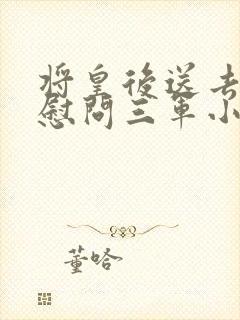 将皇後送去
慰問三軍小
董哈